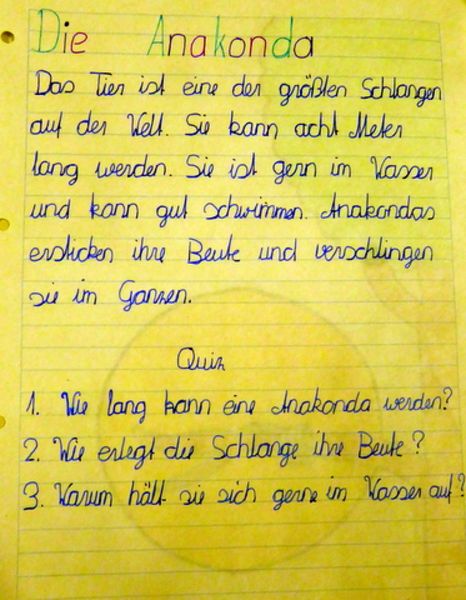 Die Anakonda
Das Tier ist eine der größten Schlangen
auf der Welt. Sie kann acht Meter
lang werden. Sie ist gern im Wasser
und kann gut schwimmen. Anakondas
ersticken ihre Beute und verschlingen
sie im Ganzen.
Quiz
1. Wie lang kann eine Anakonda werden?
2. Wie erlegt die Schlange ihre Beute?
3. Warum hält sie sich gerne im Wasser auf?